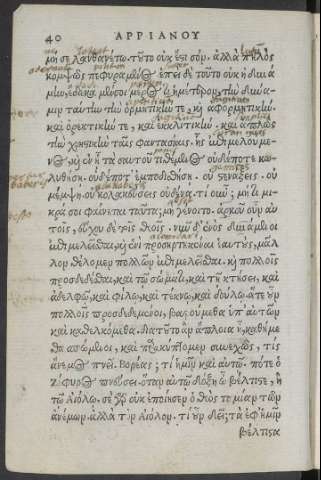 40 ΑΡΡΙΑΝΟΥ
μή σε λανθανέτω. τοῦτο οὐκ ἔστι σόν. ἀλλὰ πηλὸς
κομψῶς πεφυραμένος. ἐπεὶ δὲ τοῦτο οὐκ ἠδυνά
μην, ἔδωκα μέρος ὑμῖν τι ἡμέτερον, τὴν δύνα-
μιν ταύτην τὴν ὁρμητικήν τε, καὶ ἀφορμητικήν.
καὶ ὀρεκτικήν τε, καὶ ἐκκλιτικήν. καὶ ἁπλῶς
τὴν χρηστικὴν ταῖς φαντασίαις. ἧς ἐπιμελούμε-
νος, καὶ ἐν ᾗ τὰ σαυτοῦ τιθέμενος οὐδέποτε κω-
λυθήσῃ. οὐδέποτ' ἐμποδισθήσῃ. οὐ στενάξεις. οὐ
μέμψῃ. οὐ κολακεύσεις οὐδένα. τί οὖν; μή τι μι-
κρά σοι φαίνεται ταῦτα; μὴ γένοιτο. ἀρκῇ οὖν αὐ
τοῖς, εὔχου δὲ τοῖς θεοῖς. νῦν δ' ἑνὸς δυνάμενοι
ἐπιμελεῖσθαι, καὶ ἑνὶ προσηρτηκέναι ἑαυτούς, μᾶλ
λον θέλομεν πολλῶν ἐπιμελεῖσθαι. καὶ πολλοῖς
προσδεδέσθαι, καὶ τῷ σώματι, καὶ τῇ κτήσει, καὶ
ἀδελφῷ, καὶ φίλῳ, καὶ τέκνῳ, καὶ δούλῳ. ἅτε οὖν
πολλοῖς προσδεδεμένοι, βαρούμεθα ὑπ' αὐτῶν
καὶ καθελκόμεθα. διὰ τοῦτο ἂν ἄπλοια ᾖ, καθήμε
θα σπώμενοι, καὶ παρακύπτομεν συνεχῶς, τίς
ἄνεμος πνεῖ. Βορέας; τί ἡμῖν καὶ αὐτῷ. πότε ὁ
ζέφυρος πνεύσει. ὅταν αὐτῷ δόξῃ ὦ βέλτιστε, ἢ
τῷ αἰόλῳ. σὲ γὰρ οὐκ ἐποίησεν ὁ θεὸς ταμίαν τῶν
ἀνέμων. ἀλλὰ τὸν αἴολον. τί οὖν δεῖ; τὰ ἐφ' ἡμῖν
βέλτιστα